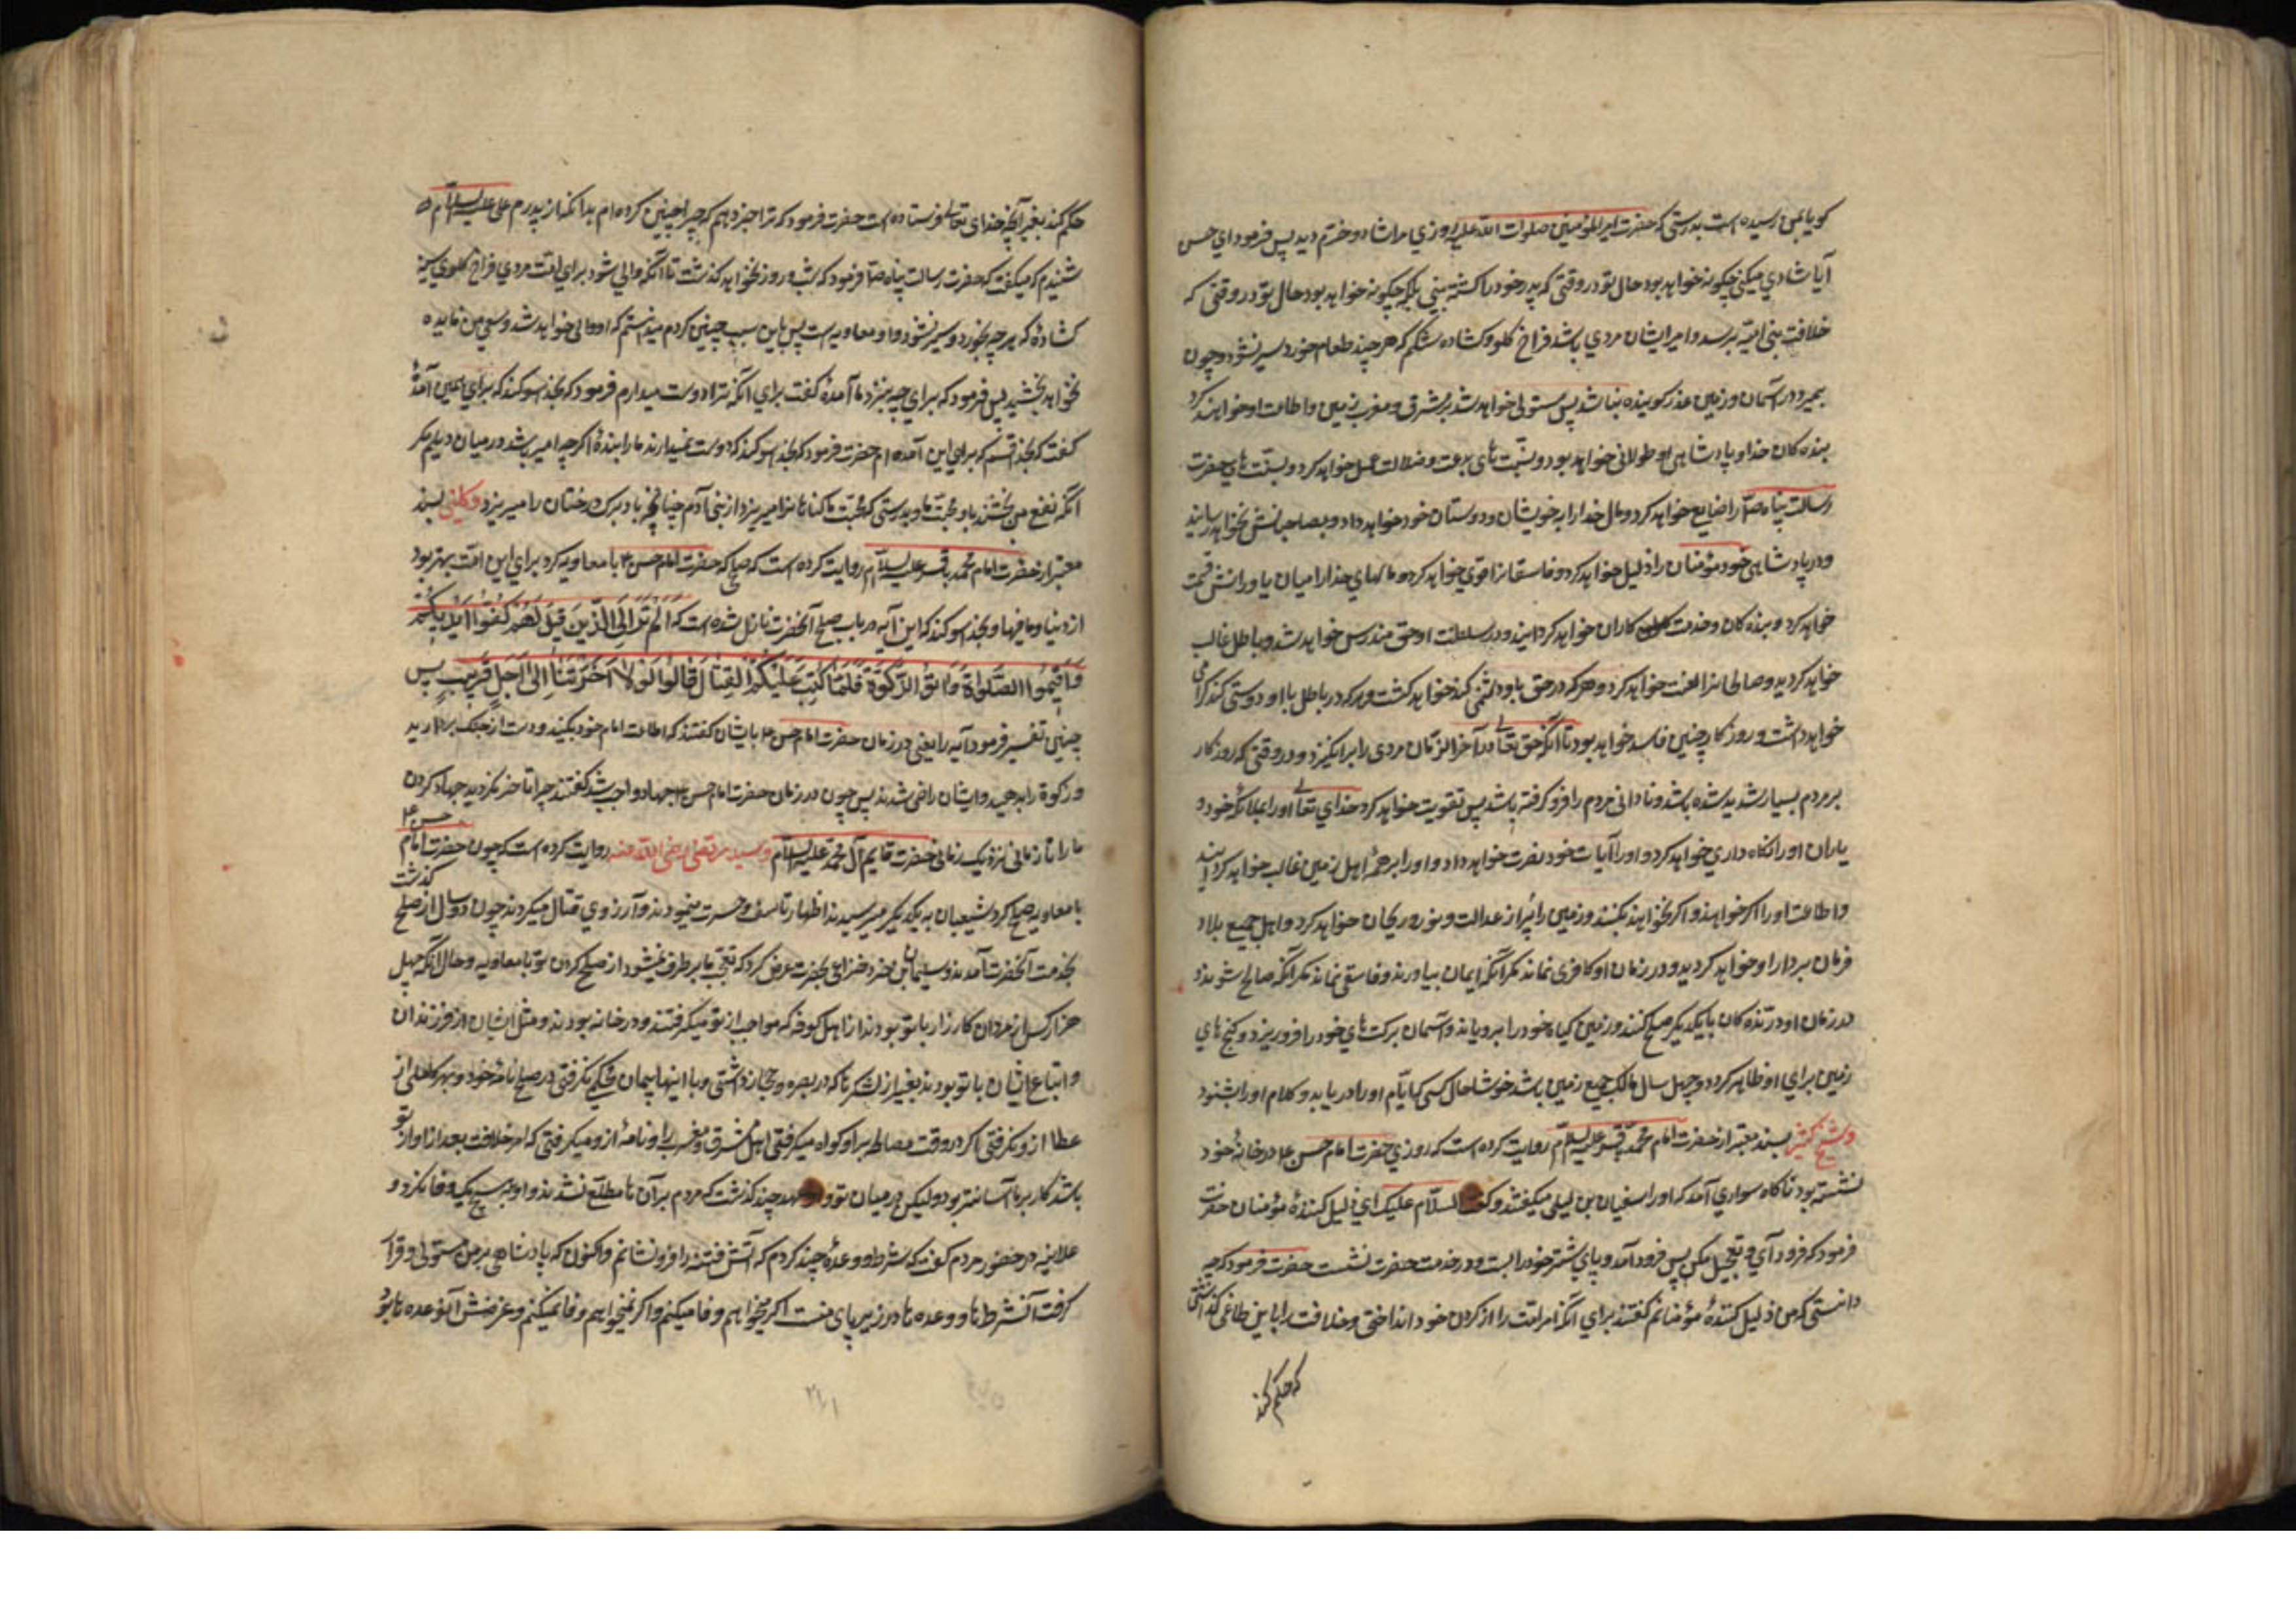 کویا بمن رسیده است بدرستی که حضرت امیر المؤمنین صلوات الله علیه روزی مرا شاد و خرّم دید پس فرمود ای حسن
آیا شادی میکنی چکونه خواهد بود حال تو در وقتی که پدر خود را کشته بینی بلکه چکونه خواهد بود حال تو در وقتی که
خلافت بنی امیّه برسد و امیر ایشان مردی باشد فراخ کلو و کشاده شکم که هر چند طعام خورد سیر نشود و چون
بمیرد در آسمان و زمین عذر کوینده نباشد پس مستولی خواهد شد بر مشرق و مغرب زمین و اطاعت او خواهند کرد
بنده کان خدا و پادشاهی او طولانی خواهد بود و بسنّت های بدعت و ضلالت عمل خواهد کرد و سنّت های حضرت
رسالت پناه صلّ را ضایع خواهد کرد و مال خدا را به خویشان و دوستان خود خواهد داد و بصاحبانش نخواهد رسانید
و در پادشاهی خود مؤمنان را ذلیل خواهد کرد و فاسقانرا قوی خواهد کرد و مالهای خدا را میان یاورانش قسمت
خواهد کرد و بنده کان و خدمت کاران خواهد کردانید و در سلطنت او حق مندرس خواهد شد و باطل غالب
خواهد کردید و صالحانرا لعنت خواهد کرد و هر که در حق با او دشمنی کند خواهد کشت و هر که در باطل با او دوستی کند کرامی
خواهد داشت و روزکار چنین فاسد خواهد بود تا آنکه حق تعالی در آخر الزمان مردی را برانکیزد و در وقتی که روزکار
بر مردم بسیار شدید شده باشد و نادانی مردم را فرو کرفته باشد پس تقویت خواهد کرد خدای تعالی او را بملائکه خود و
یاران او را نکاه داری خواهد کرد و او را آیات خود نصرت خواهد داد و او را بر همه اهل زمین غالب خواهد کردانید
و اطاعت او را اکر خواهند و اکر نخواهند بکنند و زمین را پر از عدالت و نور و ریحان خواهد کرد و اهل جمیع بلاد
فرمان بردار او خواهد کردید و در زمان او کافری نماند مکر آنکه ایمان بیاورند و فاسقی نماند مکر آنکه صالح شوند
در زمان او درنده کان با یکدیکر صلح کنند و زمین کیاه خود را برویاند و آسمان برکت های خود را فرو ریزد و کنج های
زمین برای او ظاهر کردد و چهل سال مالک جمیع زمین باشد خوشا حال کسی که ایام او را دریابد و کلام او را بشنود
و شیخ کشی بسند معتبر از حضرت امام محمد باقر علیه السلام روایت کرده است که روزی حضرت امام حسن ع در خانه خود
نشسته بود ناکاه سواری آمد که او را سفیان بن لیلی میکفتند و کفت السلام علیک ای ذلیل کننده مؤمنان حضرت
فرمود که فرود آی و تعجیل مکن پس فرود آمد و پای شتر خود را بست و در خدمت حضرت نشست حضرت فرمود که چه
دانستی که من ذلیل کننده مؤمنانم کفتند برای آنکه امر امّت را از کردن خود انداختی و خلافت را باین طاغی کذاشتی
که حکم کند
حکم کند بغیر آنچه خدای تعالی فرستاده است حضرت فرمود که ترا خبر دهم که چرا چنین کرده ام بدانکه از پدرم علی علیه السلام
شنیدم که میکفت که حضرت رسالت پناه صلّ فرمود که شب و روز نخواهد کذشت تا آنکه والی شود برای امّت مردی فراخ کلوی سینه
کشاده که هر چه بخورد و سیر نشود و او معاویه است پس باین سبب چنین کردم میدانستم که او والی خواهد شد و سعی من فایده
نخواهد بخشید پس فرمود که برای چه بنزد ما آمده کفت برای آنکه ترا دوست میدارم فرمود که بخدا سوکند که برای همین آمدهٔ
کفت که بخدا قسم که برای این آمده ام حضرت فرمود که بخدا سوکند که دوست نمیدارند ما را بندهٔ اکر چه اسیر باشد در میان دیلم مکر
آنکه نفع می بخشد باو محبّت ما و بدرستی که محبّت ما کناهانرا میریزد از بنی آدم چنانچه باد برک درختان را میریزد و کلینی بسند
معتبر از حضرت امام محمد باقر علیه السلام روایت کرده است که صلحی که حضرت امام حسن ع با معاویه کرد برای این امّت بهتر بود
از دنیا و ما فیها و بخدا سوکند که این آیه در باب صلح آنحضرت نازل شده است که اَلَمْ تَرَ اِلَی الَّذینَ قیلَ لَهُمْ کُفُّوا اَیْدِیَکُمْ
وَ اَقیمُوا الصَّلوٰةَ وَ اٰتُوا الزَّکوٰةَ فَلَمّٰا کُتِبَ عَلَیْکُمُ الْقِتٰالُ قٰالُوا لَوْلٰا اَخَّرْتَنٰا اِلیٰ اَجَلٍ قَریبٍ پس
چنین تفسیر فرمود آیه را یعنی در زمان حضرت امام حسن ع بایشان کفتند که اطاعت امام خود بکنید و دست از جنک بردارید
و زکوة را بدهید و ایشان راضی شدند پس چون در زمان حضرت امام حسین ع جهاد واجب شد کفتند چرا تأخیر نکردید جهاد کردن
ما را تا زمانی نزدیک زمانی حضرت قایم آل محمد علیه السلام و سید مرتضی رضی الله عنه روایت کرده است که چون حضرت امام حسن ع
با معاویه صلح کرد شیعیان به یکدیکر میرسیدند اظهار تاسف و حسرت مینمودند و آرزوی قتال میکردند چون دو سال از صلح کذشت
بخدمت آنحضرت آمدند و سلیمان بن صرد خزاعی بحضرت عرض کرد که تعجّب ما بر طرف نمیشود از صلح کردن تو با معاویه و حال آنکه چهل
هزار کس از مردان کارزار با تو بودند از اهل کوفه که مواجب از تو میکرفتند و در خانه بودند و مثل ایشان از فرزندان
و اتباع ایشان با تو بودند بغیر از لشکرها که در بصره و حجاز داشتی و با اینها پیمان محکمی نکرفتی در صلح نامه خود و بهره کاملی از
عطا از او نکرفتی اکر در وقت مصالحه بر او کواه میکرفتی اهل مشرق و مغرب را و نامهٔ از او میکرفتی که امر خلافت بعد از او از تو
باشد کار بر ما آسانتر بود ولیکن در میان تو و او عهد چند کذشت که مردم بر آن ها مطلّع نشدند و او به هیچ یک وفا نکرد و
علانیه در حضور مردم کفت که شرط و وعدهٔ چند کردم که آتش فتنه را فرو نشانم و اکنون که پادشاهی بر من مستولی و قرار
کرفت آنشرطها و وعده ها در زیر پای منست اکر میخواهم وفا میکنم و اکر نمیخواهم وفا نمیکنم و غرضش آنوعده ها بود